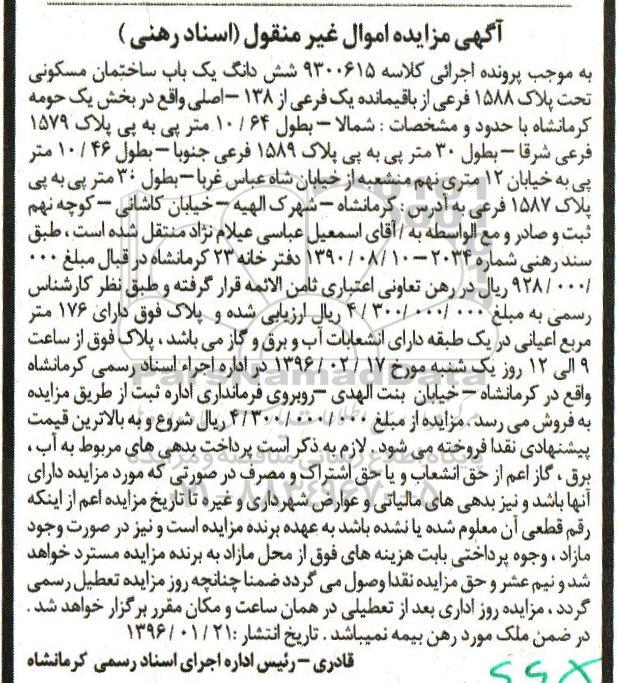 آگهی مزایده اموال غیر منقول (اسناد رهنی)
به موجب پرونده اجرائی کلاسه ۹۳۰۰۶۱۵ شش دانگ یک باب ساختمان مسکونی
تحت پلاک ۱۵۸۸ فرعی از باقیمانده یک فرعی از ۱۳۸ – اصلی واقع در بخش یک حومه
کرمانشاه با حدود و مشخصات : شمالا – بطول ۶۴ / ۱۰ متر پی به پی پلاک ۱۵۷۹
فرعی شرقا – بطول ۳۰ متر پی به پی پلاک ۱۵۸۹ فرعی جنوبا – بطول ۴۶ / ۱۰ متر
پی به خیابان ۱۲ متری نهم منشعبه از خیابان شاه عباس غربا – بطول ۳۰ متر پی به پی
پلاک ۱۵۸۷ فرعی به آدرس : کرمانشاه – شهرک الهیه – خیابان کاشانی – کوچه نهم
ثبت و صادر و مع الواسطه به / آقای اسمعیل عباسی عیلام نژاد منتقل شده است ، طبق
سند رهنی شماره ۲۰۳۴ – ۱۰ / ۰۸ / ۱۳۹۰ دفتر خانه ۲۳ کرمانشاه در قبال مبلغ ۰۰۰
/ ۹۲۸/۰۰۰ ریال در رهن تعاونی اعتباری ثامن الائمه قرار گرفته و طبق نظر کارشناس
رسمی به مبلغ ۰۰۰ / ۰۰۰ / ۳۰۰ / ۴ ریال ارزیابی شده و پلاک فوق دارای ۱۷۶ متر
مربع اعیانی در یک طبقه دارای انشعابات آب و برق و گاز می باشد ، پلاک فوق از ساعت
۹ الی ۱۲ روز یک شنبه مورخ ۱۷ / ۰۲ / ۱۳۹۶ در اداره اجراء اسناد رسمی کرمانشاه
واقع در کرمانشاه – خیابان بنت الهدی – روبروی فرمانداری اداره ثبت از طریق مزایده
به فروش می رسد . مزایده از مبلغ ۰۰۰ / ۰۰۰ / ۳۰۰ / ۴ ریال شروع و به بالاترین قیمت
پیشنهادی نقدا فروخته می شود . لازم به ذکر است پرداخت بدهی های مربوط به آب ،
برق ، گاز اعم از حق انشعاب و یا حق اشتراک و مصرف در صورتی که مورد مزایده دارای
آنها باشد و نیز بدهی های مالیاتی و عوارض شهرداری و غیره تا تاریخ مزایده اعم از اینکه
رقم قطعی آن معلوم شده یا نشده باشد به عهده برنده مزایده است و نیز در صورت وجود
مازاد ، وجوه پرداختی بابت هزینه های فوق از محل مازاد به برنده مزایده مسترد خواهد
شد و نیم عشر و حق مزایده نقدا وصول می گردد ضمنا چنانچه روز مزایده تعطیل رسمی
گردد ، مزایده روز اداری بعد از تعطیلی در همان ساعت و مکان مقرر برگزار خواهد شد .
در ضمن ملک مورد رهن بیمه نمیباشد . تاریخ انتشار : ۲۱ / ۰۱ / ۱۳۹۶
قادری – رئیس اداره اجرای اسناد رسمی کرمانشاه
ParsNamadData